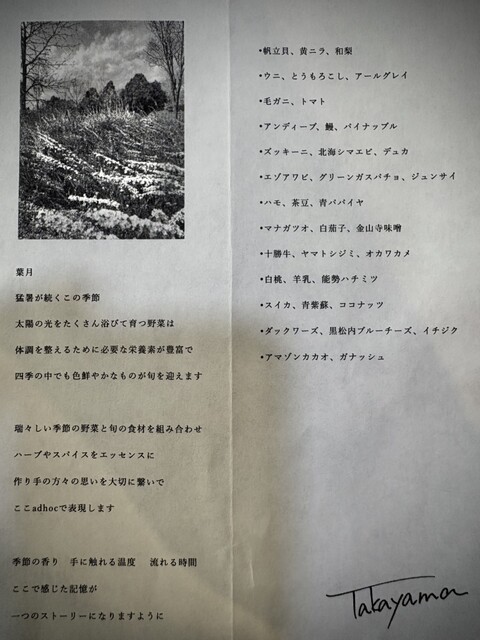 葉月
猛暑が続くこの季節
太陽の光をたくさん浴びて育つ野菜は
体調を整えるために必要な栄養素が豊富で
四季の中でも色鮮やかなものが旬を迎えます
瑞々しい季節の野菜と旬の食材を組み合わせ
ハーブやスパイスをエッセンスに
作り手の方々の思いを大切に繋いで
ここadhocで表現します
季節の香り 手に触れる温度 流れる時間
ここで感じた記憶が
一つのストーリーになりますように
•帆立貝、黄ニラ、和梨
•ウニ、とうもろこし、アールグレイ
•毛ガニ、トマト
•アンディーブ、鰻、パイナップル
•ズッキーニ、北海シマエビ、デュカ
•エゾアワビ、グリーンガスパチョ、ジュンサイ
•ハモ、茶豆、青パパイヤ
•マナガツオ、白茄子、金山寺味噌
•十勝牛、ヤマトシジミ、オカワカメ
•白桃、羊乳、能勢ハチミツ
•スイカ、青紫蘇、ココナッツ
•ダックワーズ、黒松内ブルーチーズ、イチジク
•アマゾンカカオ、ガナッシュ
Takayama